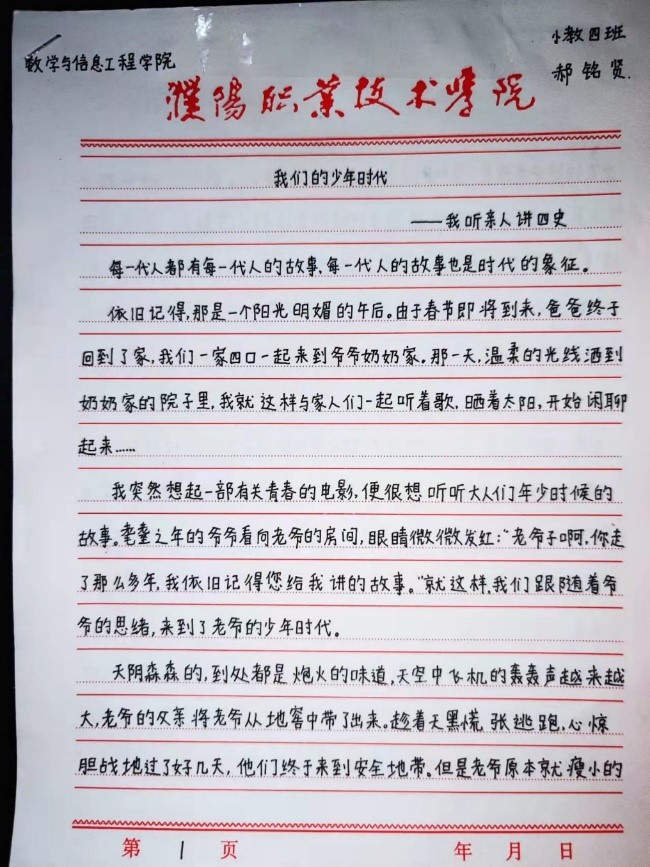 数学与信息工程学院
小教四班
郝铭贤.
濮阳职业技术学院
我们的少年时代
——我听亲人讲四史
每一代人都有每一代人的故事,每一代人的故事也是时代的象征。
依旧记得,那是一个阳光明媚的午后。由于春节即将到来,爸爸终于
回到了家,我们一家四口一起来到爷爷奶奶家。那一天,温柔的光线洒到
奶奶家的院子里,我就这样与家人们一起听着歌,晒着太阳,开始闲聊
起来……
我突然想起一部有关青春的电影,便很想听听大人们年少时候的
故事。耄耋之年的爷爷看向老爷的房间,眼睛微微发红:“老爷子啊,你走
了那么多年,我依旧记得您给我讲的故事。”就这样,我们跟随着爷
爷的思绪,来到了老爷的少年时代。
天阴森森的,到处都是炮火的味道,天空中飞机的轰轰声越来越
大,老爷的父亲将老爷从地窖中带了出来。趁着天黑慌张逃跑,心惊
胆战地过了好几天,他们终于来到安全地带。但是老爷原本就瘦小的
第 1 页 年 月 日